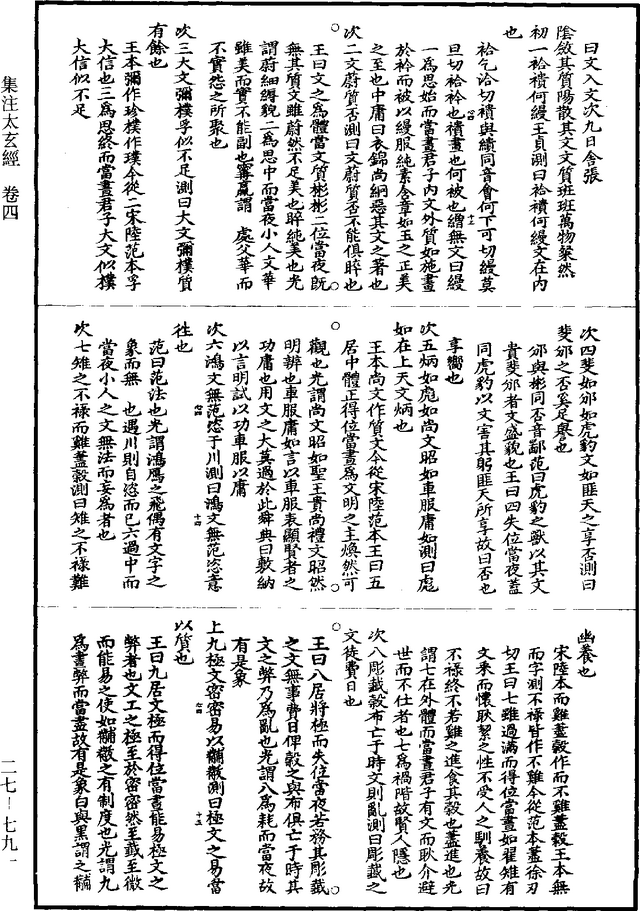 曰文入文次九日舍張
陰斂其質陽散其文文質班班萬物粲然
初一袷襀何縵玉貞測曰袷襀何縵文在內
也
袷气洽切襀與繢同音會何下可切縵莫
旦切袷袊也襀畫也何被也繒無文曰縵
一爲思始而當晝君子內文外質如施畫
於袊而被以縵服純素含章如玉之正美
之至也中庸曰衣錦尚絅惡其文之著也
次二文蔚質否測曰文蔚質否不能俱睟也
王曰文之爲體當文質彬彬二位當夜旣
無其質文雖蔚然不足美也睟純美也光
謂蔚細縟貌二爲思中而當夜小人文華
雖美而實不能副也寗嬴謂 處父華而
不實怨之所聚也
次三大文彌樸孚似不足測曰大文彌樸質
有餘也
王本彌作珍樸作璞今從二宋陸范本孚
大信也三爲思終而當晝君子大文似樸
大信似不足
次四斐如邠如虎豹文如匪天之享否測曰
斐邠之否奚足譽也
邠與彬同否音鄙范曰虎豹之獸以其文
貴斐邠者文盛貌也王曰四失位當夜蓋
同虎豹以文害其躬匪天所享故曰否也
享嚮也
次五炳如彪如尚文昭如車服庸如測曰彪
如在上天文炳也
王本尚文作質文今從宋陸范本王曰五
居中體正得位當晝爲文明之主煥然可
觀也光謂尚文昭如聖王貴尚禮文昭然
明辨也車服庸如言以車服表顯賢者之
功庸也用文之大莫過於此舜典曰敷納
以言明試以功車服以庸
次六鴻文無范恣于川測曰鴻文無范恣意
往也
范曰范法也光謂鴻鴈之飛偶有文字之
象而無 也遇川則自恣而已六過中而
當夜小人之文無法而妄爲者也
次七雉之不祿而雞藎穀測曰雉之不祿難
幽養也
宋陸本而雞藎穀作而不雞藎穀王本無
而字測不祿皆作不雞今從范本藎徐刃
切王曰七雖過滿而得位當晝如翟雉有
文釆而懷耿絜之性不受人之馴養故曰
不祿終不若雞之進食其穀也藎進也光
謂七在外體而當晝君子有文而耿介避
世而不仕者也七爲禍階故賢人隱也
次八彫韯穀布亡于時文則亂測曰彫韯之
文徒費日也
王曰八居將極而失位當夜若務其彫韯
之文無事費日俾穀之與布俱亡于時其
文之弊乃爲亂也光謂八爲耗而當夜故
有是象
上九極文密密易以黼黻測曰極文之易當
以質也
王曰九居文極而得位當晝能易極文之
弊者也文工之極至於密密然至韯至微
而能易之使如黼黻之有制度也光謂九
爲晝弊而當晝故有是象白與黑謂之黼
集注太玄經 卷四
二七-七九一